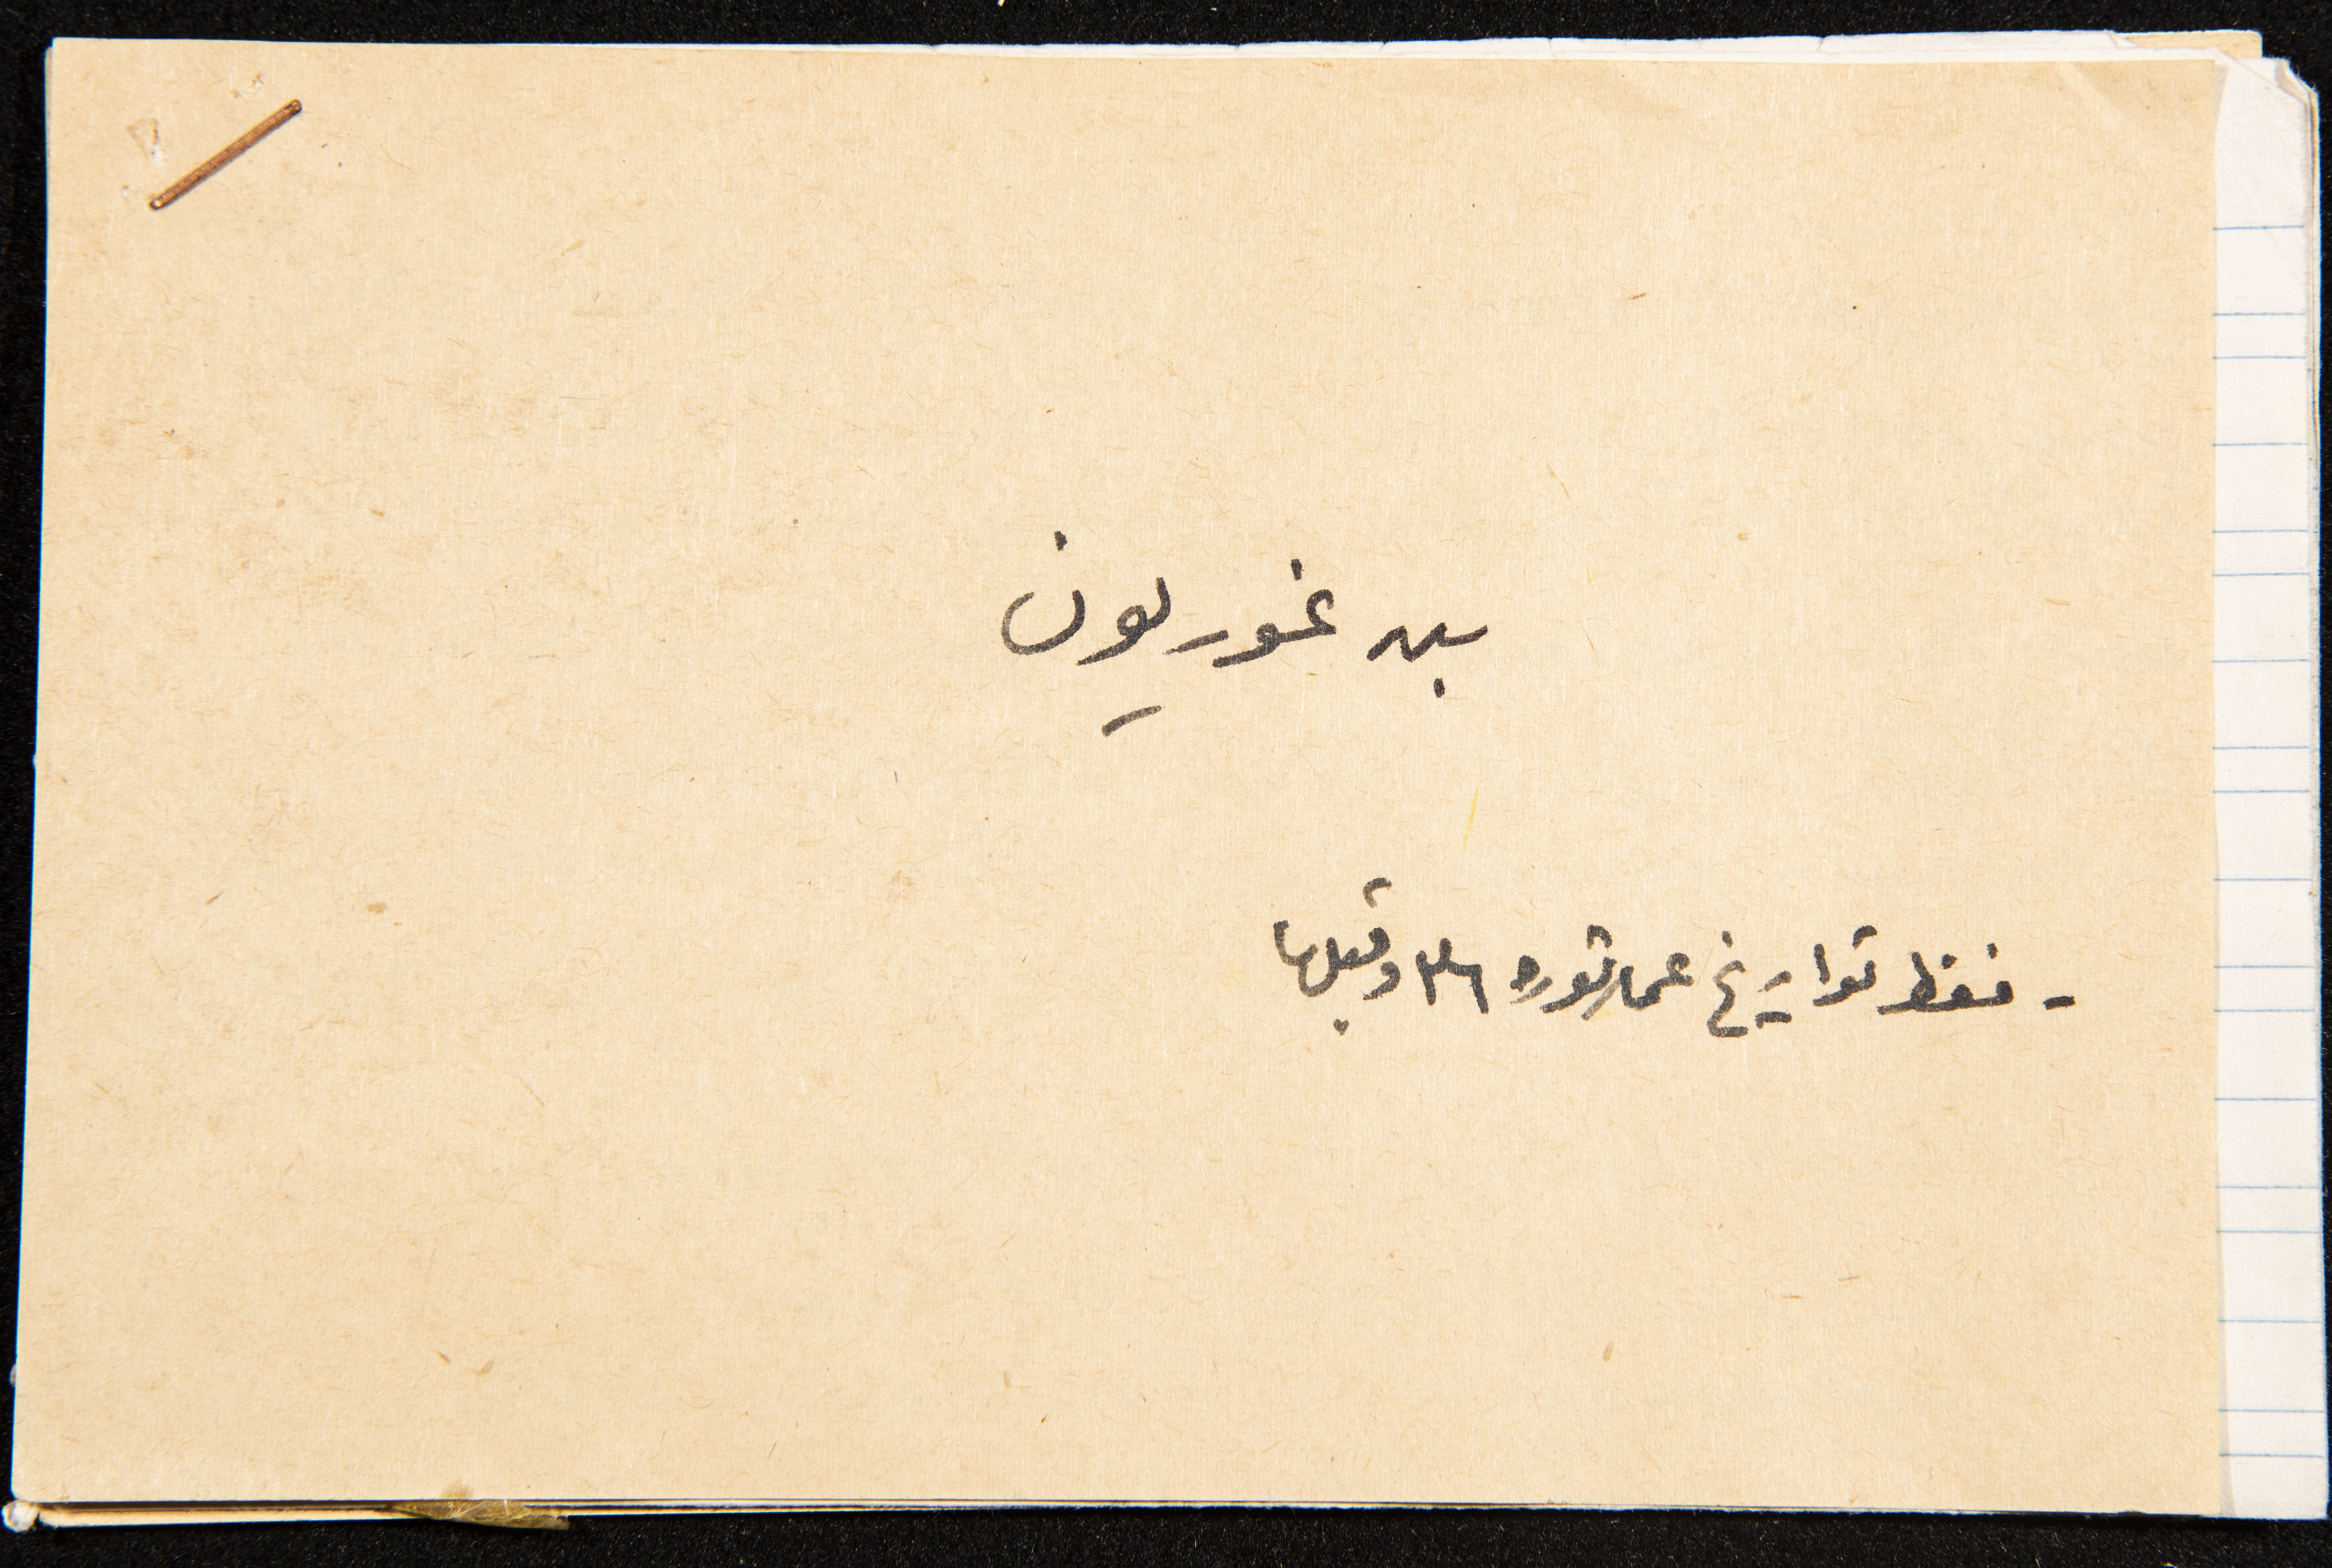 بن غوريون
- فقط تواريخ عن ثورة ٣٦ وقبلها